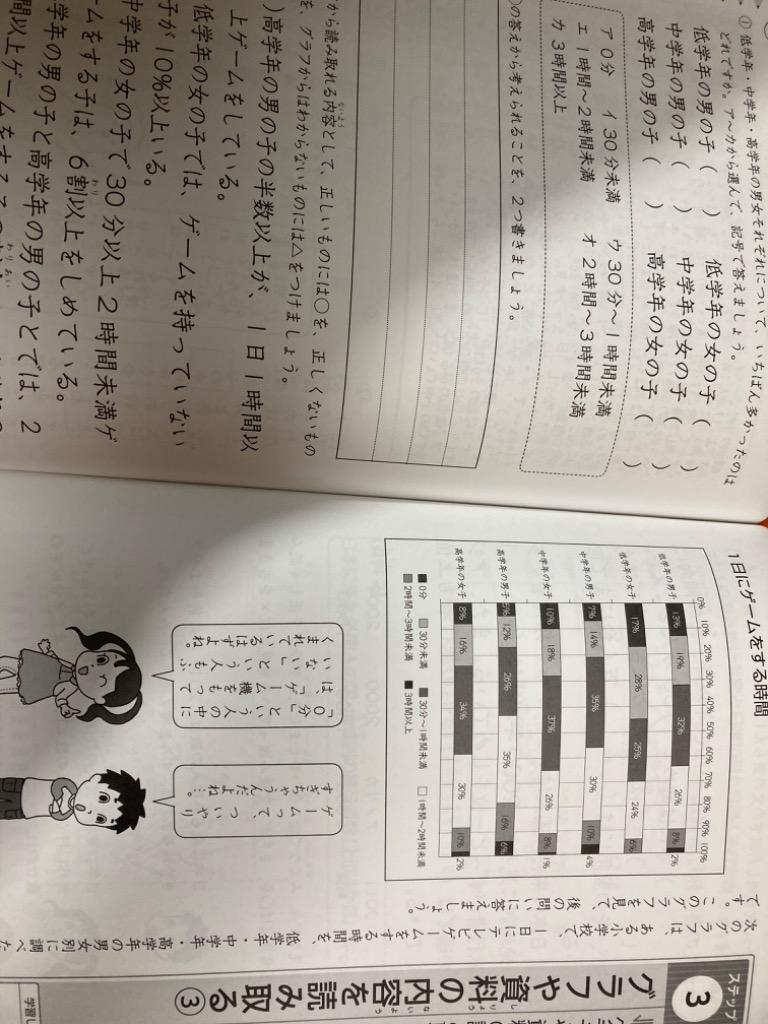 ステップ
3
グラフや資料の内容を読み取る③
しりょう
ないよう
次のグラフは、ある小学校で、一日にテレビゲームをする時間を、低学年・中学年・高学年の男女別に調べた
です。このグラフを見て、後の問いに答えましょう。
1日にゲームをする時間
0% 10% 20% 30% 40% 50% 60% 70% 80% 90% 100%
低学年の男子 13% 19% 32% 26% 8% 2%
低学年の女子 17% 28% 25% 24% 6%
中学年の男子 7% 14% 35% 30% 10% 4%
中学年の女子 10% 18% 37% 26% 8% 1%
高学年の男子 5% 12% 26% 35% 16% 6%
高学年の女子 8% 16% 34% 30% 10% 2%
0分 30分未満 30分〜1時間未満 1時間〜2時間未満
2時間〜3時間未満 3時間以上
ゲームって、ついやり
すぎちゃうんだよね…。
「0分」という人の中に
は、「ゲーム機をもって
いない」という人もふ
くまれているはずよね。
① 低学年・中学年・高学年の男女それぞれについて、いちばん多かったのは
どれですか。ア〜カから選んで、記号で答えましょう。
低学年の男の子（　） 低学年の女の子（　）
中学年の男の子（　） 中学年の女の子（　）
高学年の男の子（　） 高学年の女の子（　）
ア 0分 イ 30分未満 ウ 30分〜1時間未満
エ 1時間〜2時間未満 オ 2時間〜3時間未満
カ 3時間以上
の答えから考えられることを、2つ書きましょう。
から読み取れる内容として、正しいものには○を、正しくないもの
ないよう
を、グラフからはわからないものには△をつけましょう。
）高学年の男の子の半数以上が、1日1時間以
上ゲームをしている。
低学年の女の子では、ゲームを持っていない
子が10％以上いる。
中学年の女の子で30分以上2時間未満ゲ
ームをする子は、6割以上をしめている。
わり
学年の男の子と高学年の男の子とでは、2
間以上ゲームをする
わりあい